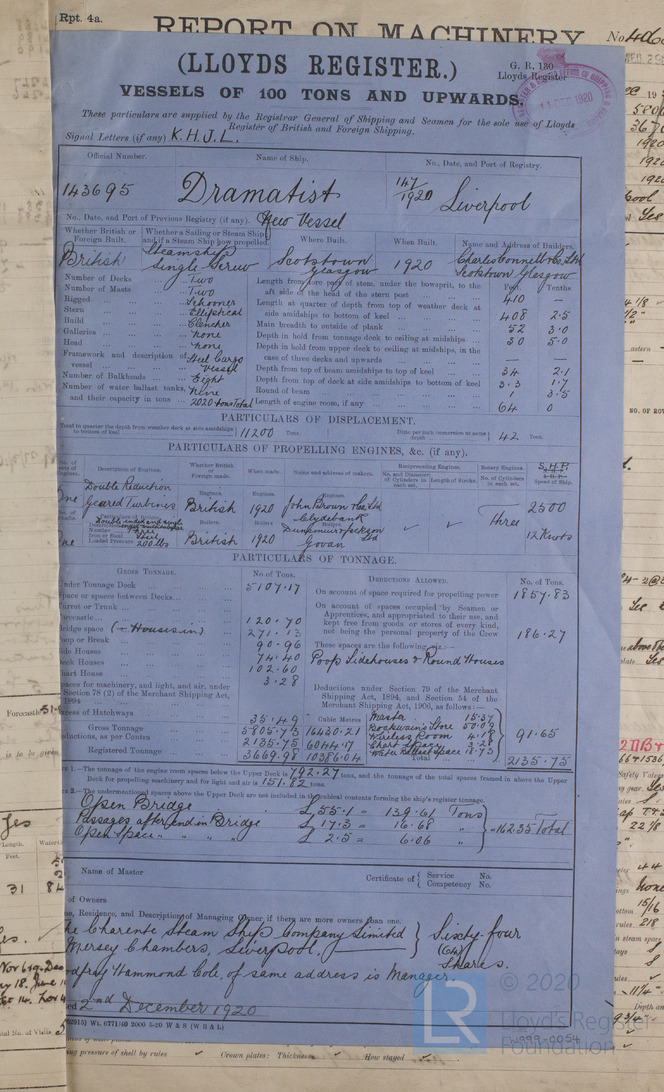 Rpt. 4a.
REPORT ON MACHINERY
(LLOYDS REGISTER.)
G. R. 130
Lloyds Register
VESSELS OF 100 TONS AND UPWARDS.
These particulars are supplied by the Registrar General of Shipping and Seamen for the sole use of Lloyds
Register of British and Foreign Shipping.
Signal Letters (if any) K.H.J.L.
Official Number. Name of Ship. No., Date, and Port of Registry.
143695 Dramatist 147/1920 Liverpool
No., Date, and Port of Previous Registry (if any). New Vessel
Whether British or Foreign Built. Whether a Sailing or Steam Ship; and if a Steam Ship how propelled. Where Built. When Built. Name and Address of Builders.
British Steamship Single Screw Scotstown Glasgow 1920 Charles Connell & Co. Ltd Scotstown Glasgow
Feet. Tenths
Number of Decks Two
Number of Masts Two
Rigged Schooner
Stern Elliptical
Build Clencher
Galleries None
Head None
Framework and description of vessel Steel Cargo Vessel
Number of Bulkheads Eight
Number of water ballast tanks, and their capacity in tons Nine 2020 tons Total
Length from fore part of stem, under the bowsprit, to the aft side of the head of the stern post 410 —
Length at quarter of depth from top of weather deck at side amidships to bottom of keel 408 2.5
Main breadth to outside of plank 52 3.0
Depth in hold from tonnage deck to ceiling at midships 30 5.0
Depth in hold from upper deck to ceiling at midships, in the case of three decks and upwards — —
Depth from top of beam amidships to top of keel 34 2.1
Depth from top of deck at side amidships to bottom of keel 33 1.7
Round of beam 1 3.5
Length of engine room, if any 64 0
PARTICULARS OF DISPLACEMENT.
Total to quarter the depth from weather deck at side amidships to bottom of keel 11200 Tons. Ditto per inch immersion at same depth 42 Tons.
PARTICULARS OF PROPELLING ENGINES, &c. (if any).
Description of Engines. Whether British or Foreign made. When made. Name and address of makers. Reciprocating Engines. Rotary Engines.
No. and Diameter of Cylinders in each set. Length of Stroke. No. of Cylinders in each set. Speed of Ship.
Double Reduction Geared Turbines
Engines. British 1920 John Brown & Co. Ltd Clydebank Three 2500
Boilers. British 1920 Dunsmuir & Jackson Ltd Govan 12 Knots
Loaded Pressure 200 lbs
PARTICULARS OF TONNAGE.
GROSS TONNAGE. No. of Tons. DEDUCTIONS ALLOWED. No. of Tons.
Under Tonnage Deck 5107.17
Space or spaces between Decks
Turret or Trunk
Forecastle 120.70
Bridge space 271.13
Poop or Break 90.96
Side Houses 74.40
Deck Houses 102.60
Chart House 3.28
Spaces for machinery, and light, and air, under Section 78 (2) of the Merchant Shipping Act, 1894
Excess of Hatchways 35.49
Gross Tonnage 5805.73 16430.21
Deductions, as per Contra 2135.75 6044.17
Registered Tonnage 3669.98 10386.04
Cubic Metres
On account of space required for propelling power 1857.83
On account of spaces occupied by Seamen or Apprentices, and appropriated to their use, and kept free from goods or stores of every kind, not being the personal property of the Crew 186.27
These spaces are the following, viz.:—
Poop Sidehouses & Round Houses
Deductions under Section 79 of the Merchant Shipping Act, 1894, and Section 54 of the Merchant Shipping Act, 1906, as follows:—
Master 15.37
Boatswains Store 50.09
Wireless Room 4.18
Chart Space 3.28
Water Ballast Space 18.73
91.65
Total 2135.75
1.—The tonnage of the engine room spaces below the Upper Deck is 792.27 tons, and the tonnage of the total spaces framed in above the Upper
Deck for propelling machinery and for light and air is 151.82 tons.
2.—The undermentioned spaces above the Upper Deck are not included in the cubical contents forming the ship's register tonnage.
Open Bridge 55.1 = 139.61 Tons
Passages after end in Bridge 17.3 = 16.68 "
Open Space 2.5 = 6.06 "
= 162.35 Total
Name of Master Certificate of Service No. Competency No.
of Owners
Residence, and Description of Managing Owner if there are more owners than one.
The Charente Steam Ship Company Limited
Mersey Chambers, Liverpool
Sixty-four (64) Shares.
Godfrey Hammond Cole, of same address is Manager.
2nd December 1920
Wt. 6771/40 2000 5-20 W & S
© 2020
LR
Lloyd's Register
Foundation
0054
pressure of shell by rules Crown plates: Thickness How stayed